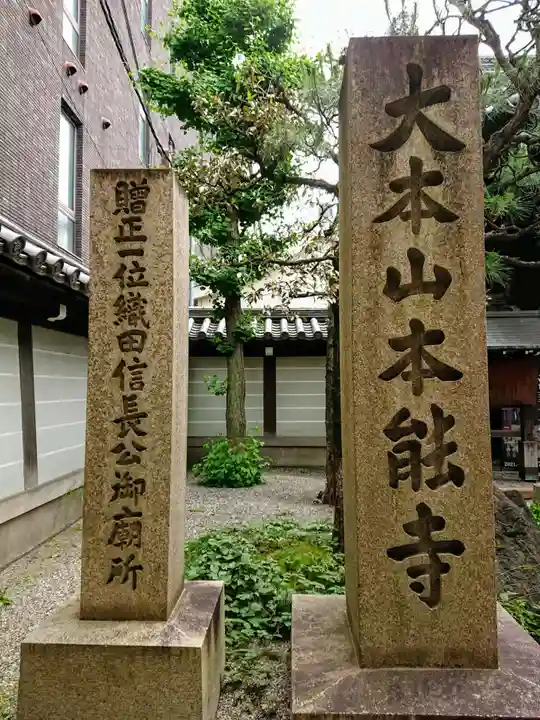 大本山本能寺
贈正一位織田信長公御廟所
2021.